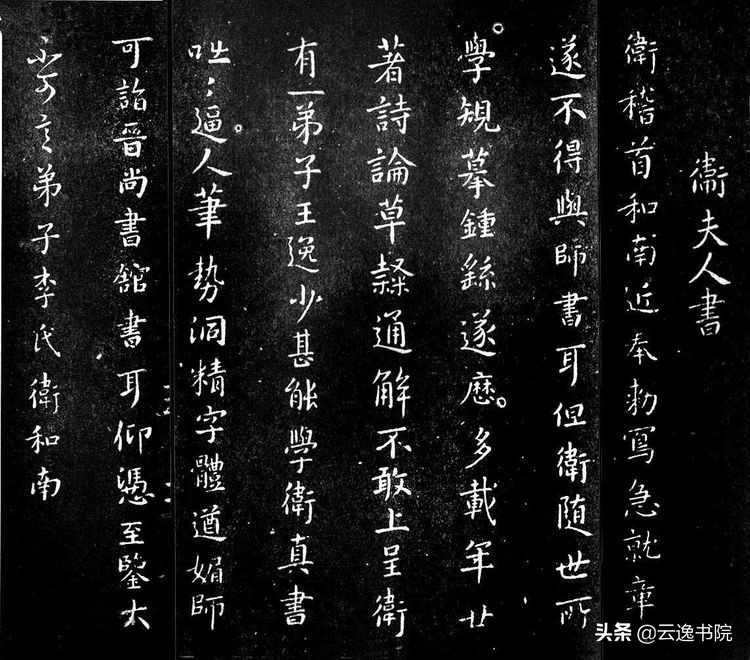 衞夫人書
衛稽首和南近奉勅寫急就章
遂不得與師書耳但衛隨世所
學規摹鍾繇遂歷多載年廿
著詩論草隸通解不敢上呈衛
有一弟子王逸少甚能學衛真書
咄咄逼人筆勢洞精字體遒媚師
可詣晉尚書館書耳仰憑至鑒大
不可言弟子李氏衛和南
头条 @云逸书院